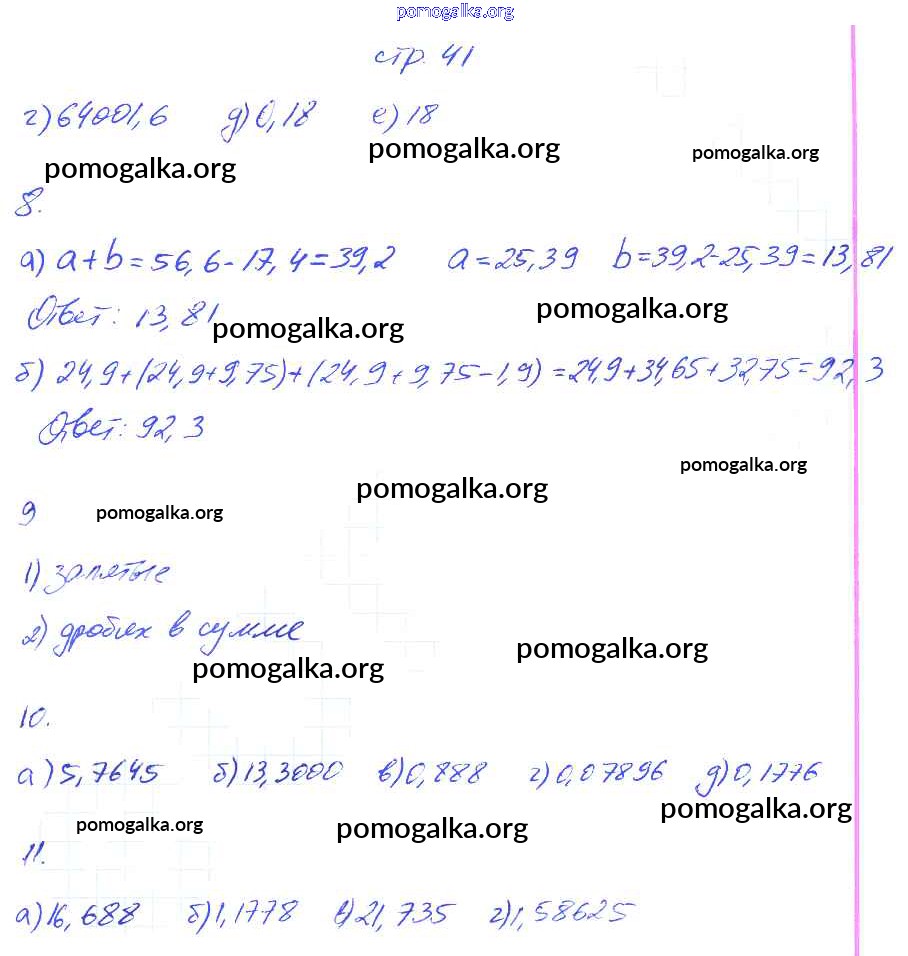 pomogalka.org
стр. 41
г) 64001,6 д) 0,18 е) 18
pomogalka.org pomogalka.org pomogalka.org
8.
а) a+b=56,6-17,4=39,2 a=25,39 b=39,2-25,39=13,81
Ответ: 13,81
pomogalka.org pomogalka.org
б) 24,9+(24,9+9,75)+(24,9+9,75-1,9)=24,9+34,65+32,75=92,3
Ответ: 92,3
pomogalka.org pomogalka.org
9 pomogalka.org
1) запятые
2) дробях в сумме
pomogalka.org pomogalka.org
10.
а) 5,7645 б) 13,3000 в) 0,888 г) 0,07896 д) 0,1776
pomogalka.org pomogalka.org pomogalka.org
11.
а) 16,688 б) 1,1778 в) 21,735 г) 1,58625